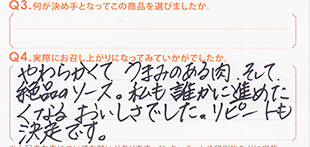 Q3.何が決め手となってこの商品を選びましたか。
Q4.実際にお召し上がりになってみていかがでしたか。
やわらかくて うまみのある肉、そして
絶品のソース。私も誰かに進めた
くなる おいしさでした。リピートも
決定です。